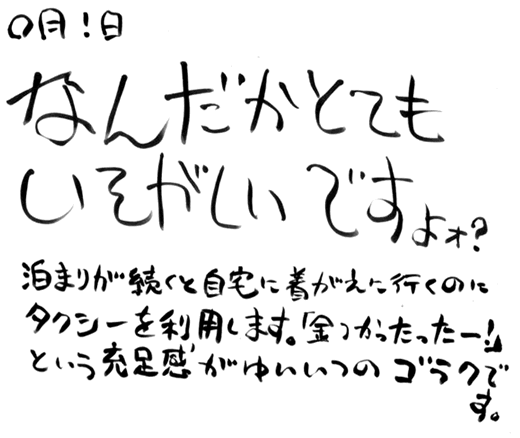 ○月!日
なんだかとても
いそがしいですよォ?
泊まりが続くと自宅に着がえに行くのに
タクシーを利用します。「金つかったったー!」
という充足感がゆいいつのゴラクで
す。